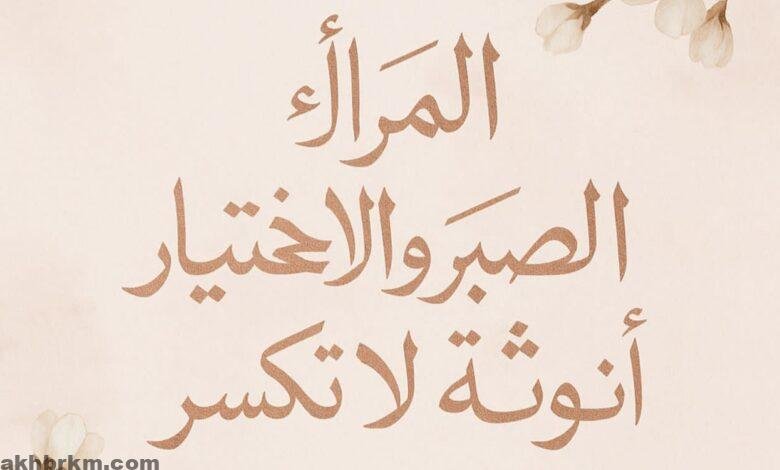 المَرأك
الصبَر والاختيار
أنوثة لا تكسر
akhbrkm.com